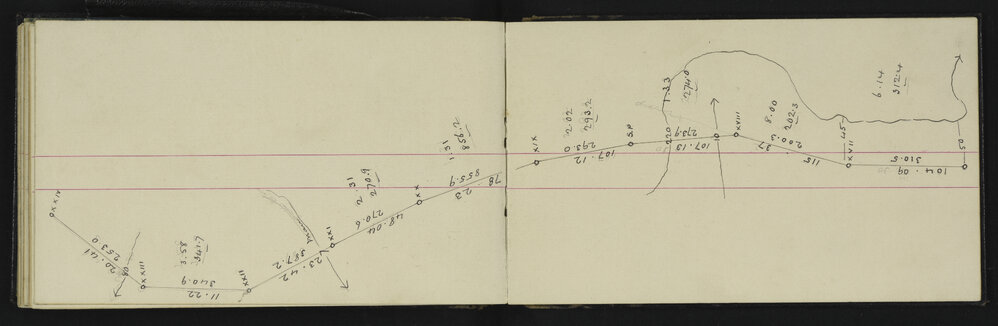 XXIV
253.0
20.41
80
XXIII
3.58
341.9
340.9
11.22
XXII
387.2
23.42
XXI
2.31
270.9
270.6
48.04
XX
1.31
856.2
855.9
78
23
XIX
2.02
293.2
293.0
107.12
S.P
220
1.33
274.0
273.9
107.13
XVIII
8.00
202.3
200.3
115
37
XVII
45
6.14
312.4
310.5
104.09
50